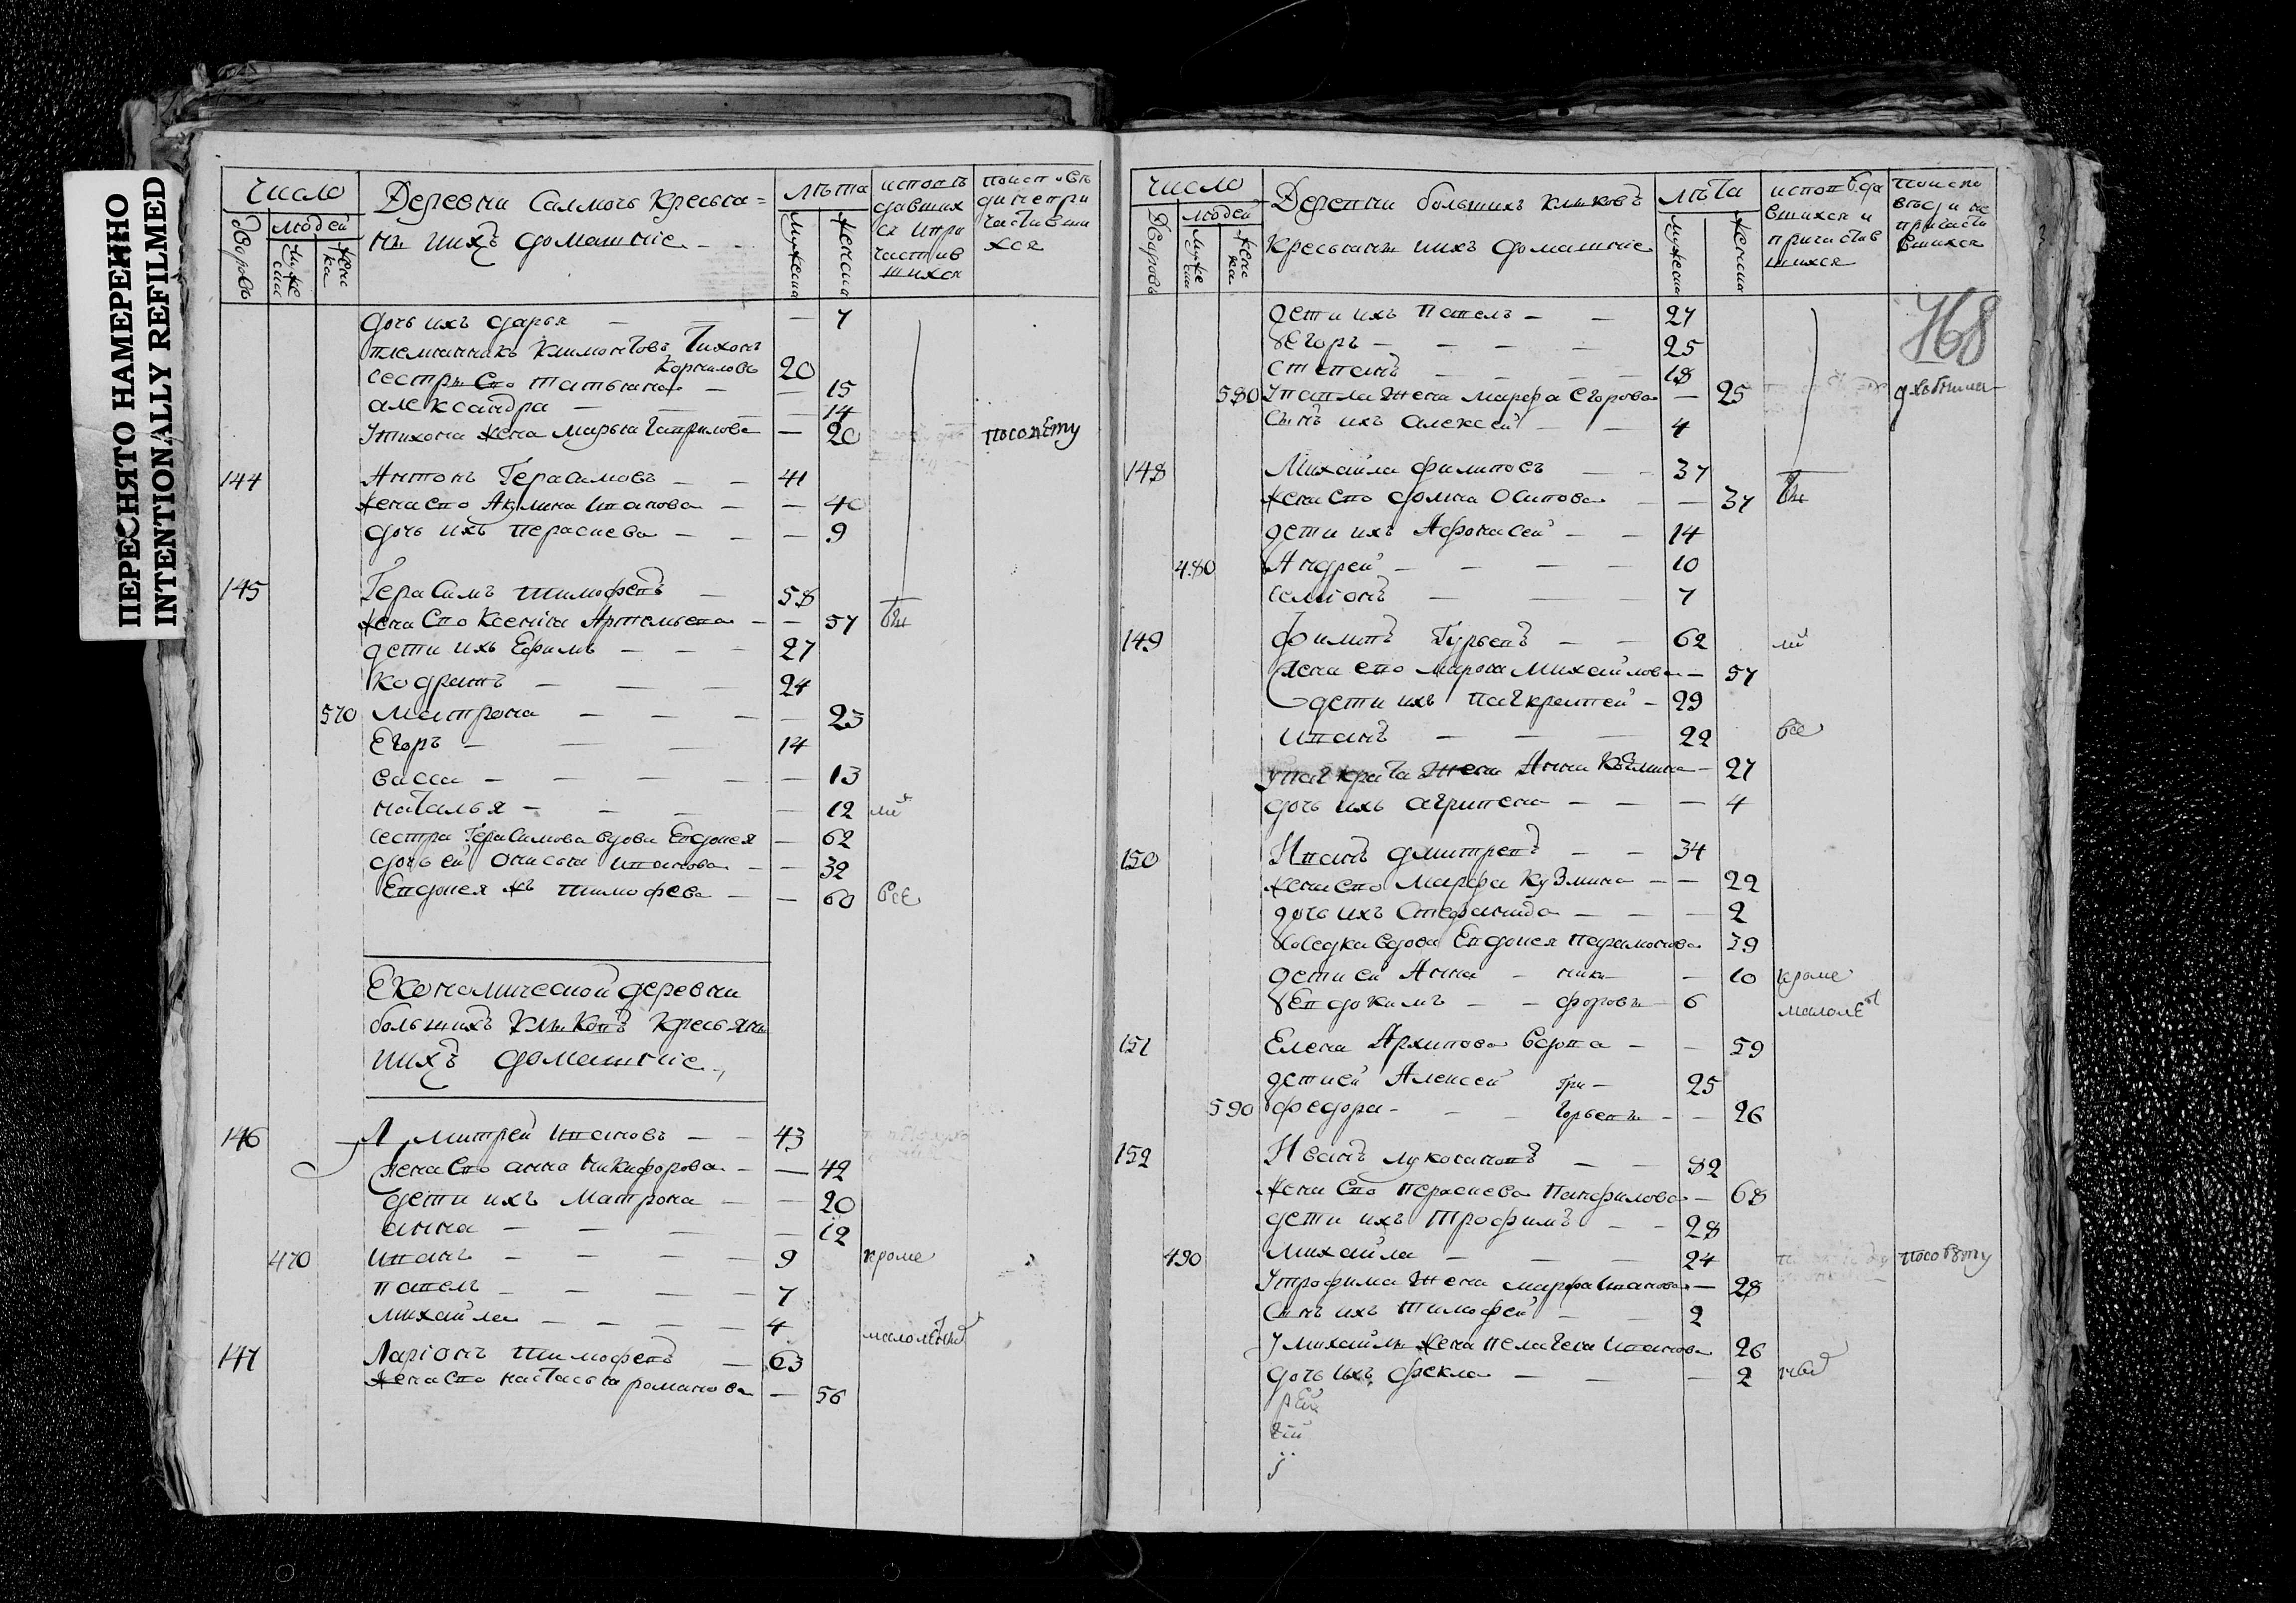 ПЕРЕСНЯТО НАМЕРЕННО
INTENTIONALLY REFILMED
число
дворовъ
людей
муже
ска
жен
ка
Деревни Салмочь Крестья=
нъ ихъ домашние
лѣта
мужеска
женска
испове
давших
ся и при
частив
шихся
поиспове
ди непри
частивши
хся
дочь ихъ дарья 7
племянникъ климонтовъ Тихонъ
Корниловъ 20
сестры Его татьяна 15
александра 14
У тихона жена марья гаврилова 20 посовету
144 Антонъ Герасимовъ 41
жена его Акулина иванова 40
дочь ихъ парасиева 9
145 Герасимъ тимофеевъ 58
жена его Ксения Артемьева 57
дети ихъ Ефимъ 27
кодратъ 24
570 матрона 23
Егоръ 14
васса 13
наталья 12
сестра Герасимова вдова Евдокея 62
дочь ей онисья иванова 32
Евдокея тимофева 60 все
Економической деревни
большихъ клыковъ Кресьяне
ихъ домашние
146 Дмитрей ивановъ 43
жена его анна никифорова 42
дети ихъ матрона 20
анна 12
470 иванъ 9 кроме
павелъ 7
михайла 4 малолетныхъ
147 Ларионъ тимофеевъ 63
жена его настасья романова 56
число
дворовъ
людей
муже
ска
жен
ка
Деревни большихъ клыковъ
Крестьяне ихъ домашние
лѣта
мужеска
женска
исповеда
вшихся и
причастив
шихся
поиспо
веди не
причасти
вшихся
768
дети ихъ павелъ 27
Егоръ 25
степанъ 18
580 У павла жена марфа Егорова 25
сынъ ихъ алексей 4
148 Михайла филиповъ 37
жена его домна осипова 37
дети ихъ Афонасей 14
480 Андрей 10
семионъ 7
149 Филипъ Гурьевъ 62
жена его марья михайлова 57
дети ихъ панкратей 29
иванъ 22 все
у панкрата жена Анна Козмина 27
дочь ихъ агрипена 4
150 Иванъ дмитревъ 34
жена его марфа кузмина 22
дочь ихъ стефанида 2
вдова Евдокея парамонова 39
дети ей Анна ники 10 кроме
Евдокимъ форовы 6 малоле
151 Елена Архипова вдова 59
дети ей Алексей Гри 25
590 федора горьевы 26
152 Иванъ лукояновъ 82
жена его парасиева панфилова 68
дети ихъ трофимъ 28
490 михайла 24 посовету
У трофима жена марфа иванова 28
сынъ ихъ тимофей 2
У михайлы жена пелагея иванова 26
дочь ихъ фекла 2